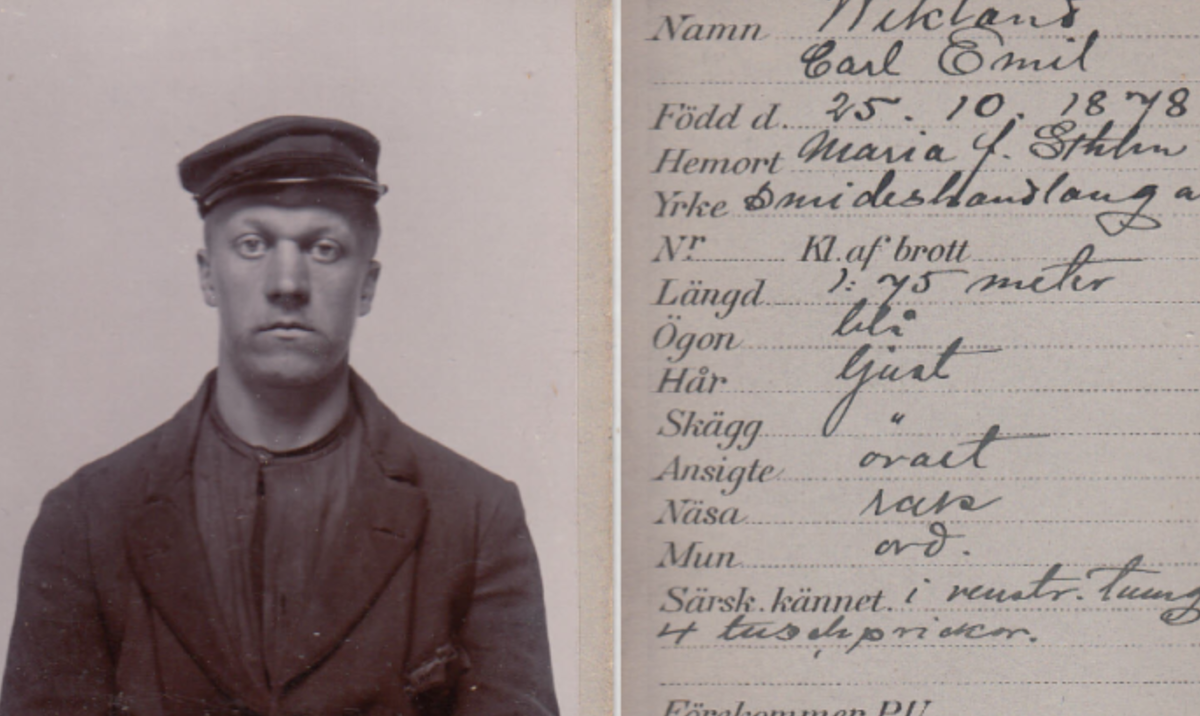 Namn Wiklund
Carl Emil
Född d. 25. 10. 1878
Hemort Maria f. Sthlm
Yrke Smideshandlanga
Nr Kl. af brott
Längd 1: 75 meter
Ögon blå
Hår ljust
Skägg "
Ansigte ovalt
Näsa rak
Mun ord.
Särsk. kännet. i venstr. tumg
4 tuschprickor.
Förekommer PU